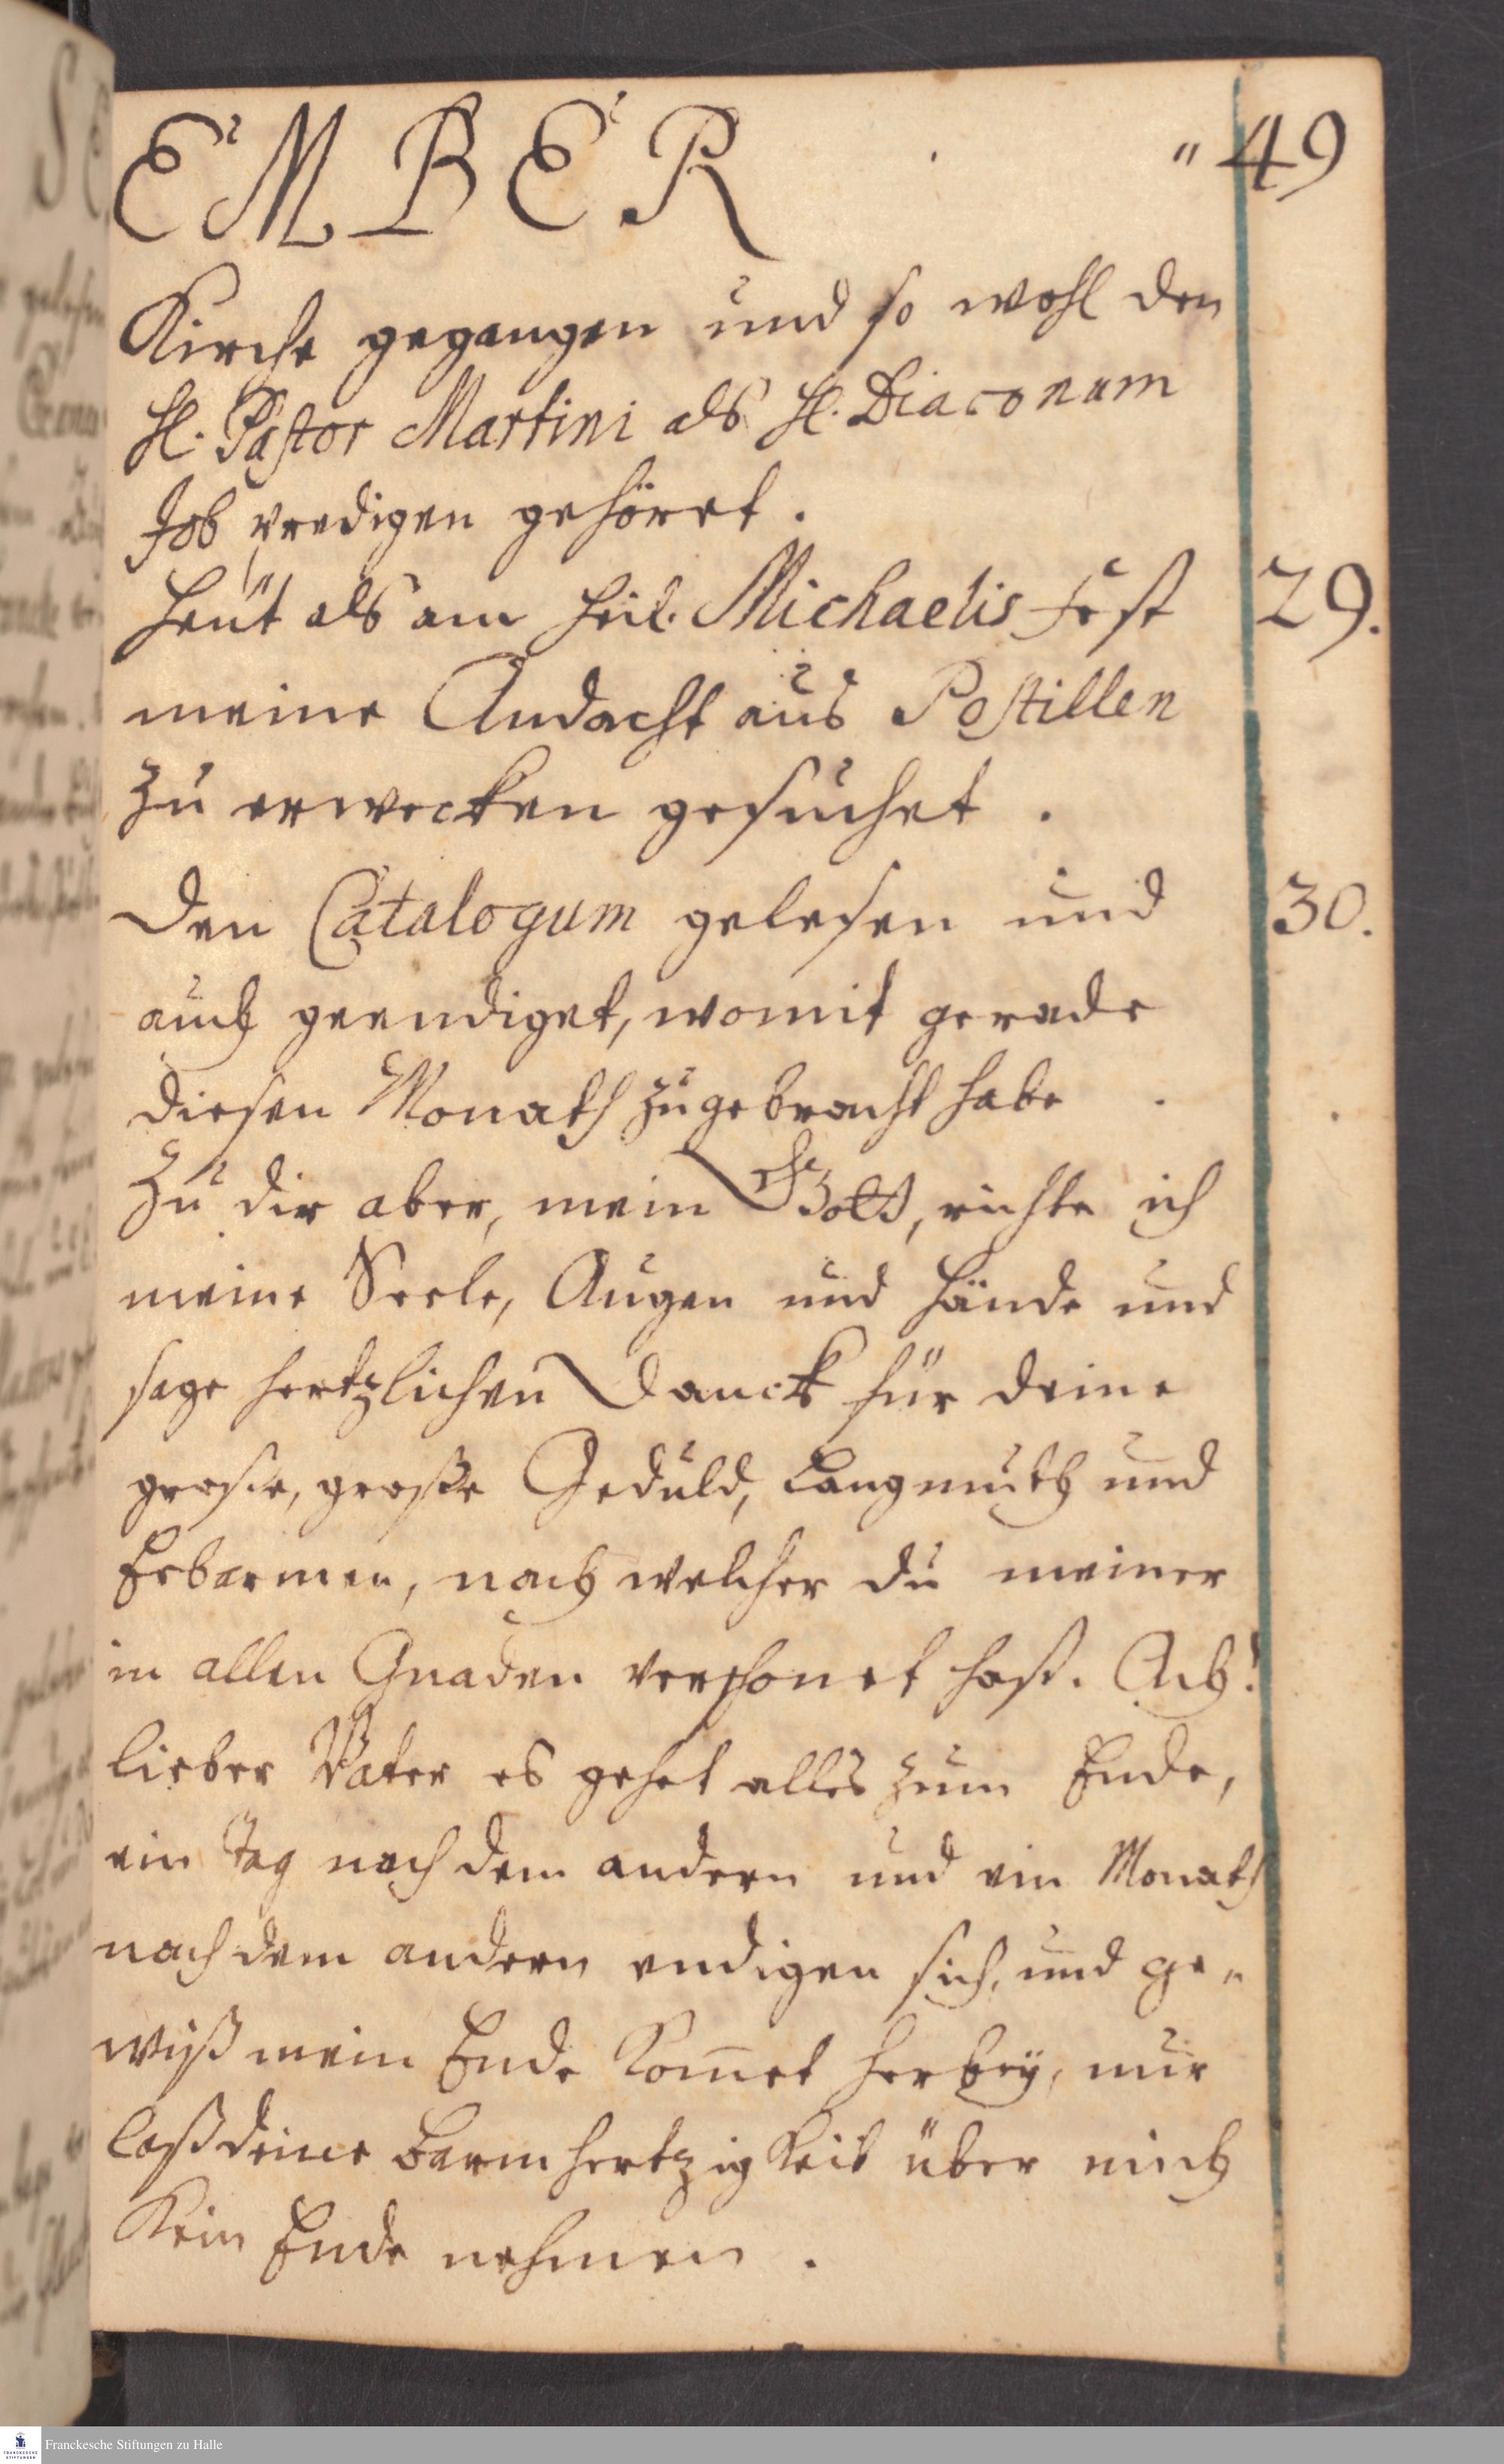 EMBER " 49
Kirche gegangen und so wohl den
H. Pastor Martini als H. Diaconum
Job predigen gehöret.
Heüt als am heil. Michaelis Fest 29.
meine Andacht aus Postillen
zu erwecken gesuchet.
Den Catalogum gelesen und 30.
auch geendiget, womit gerade
diesen Monath zugebracht habe.
Zu dir aber, mein Gott, richte ich
meine Seele, Augen und Hände und
sage hertzlichen Danck für deine
große, große Geduld, Langmuth und
Erbarmen, nach welcher du meiner
in allen Gnaden verschonet hast. Ach!
lieber Vater es gehet alles zum Ende,
ein Tag nach dem andern und ein Monath
nach dem andern endigen sich, und ge„
wiß mein Ende kom̅et herbeÿ, nur
laß deine Barmhertzigkeit über mich
kein Ende nehmen.
Franckesche Stiftungen zu Halle